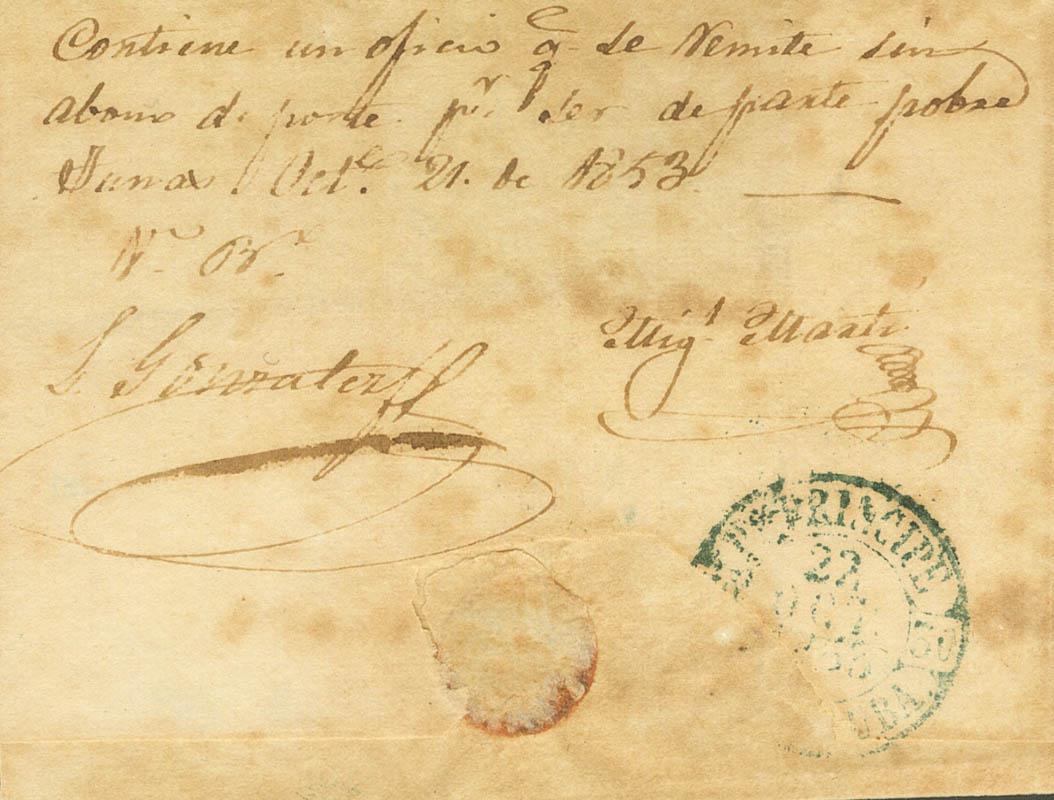 Contiene un oficio q. se Remite sin
abono de porte pr. ser de parte pobre
Tunas Oct.e 21. de 1853.
S. Gonzalez
Migl. Marti
PRINCIPE
22
OCT
30
UBA